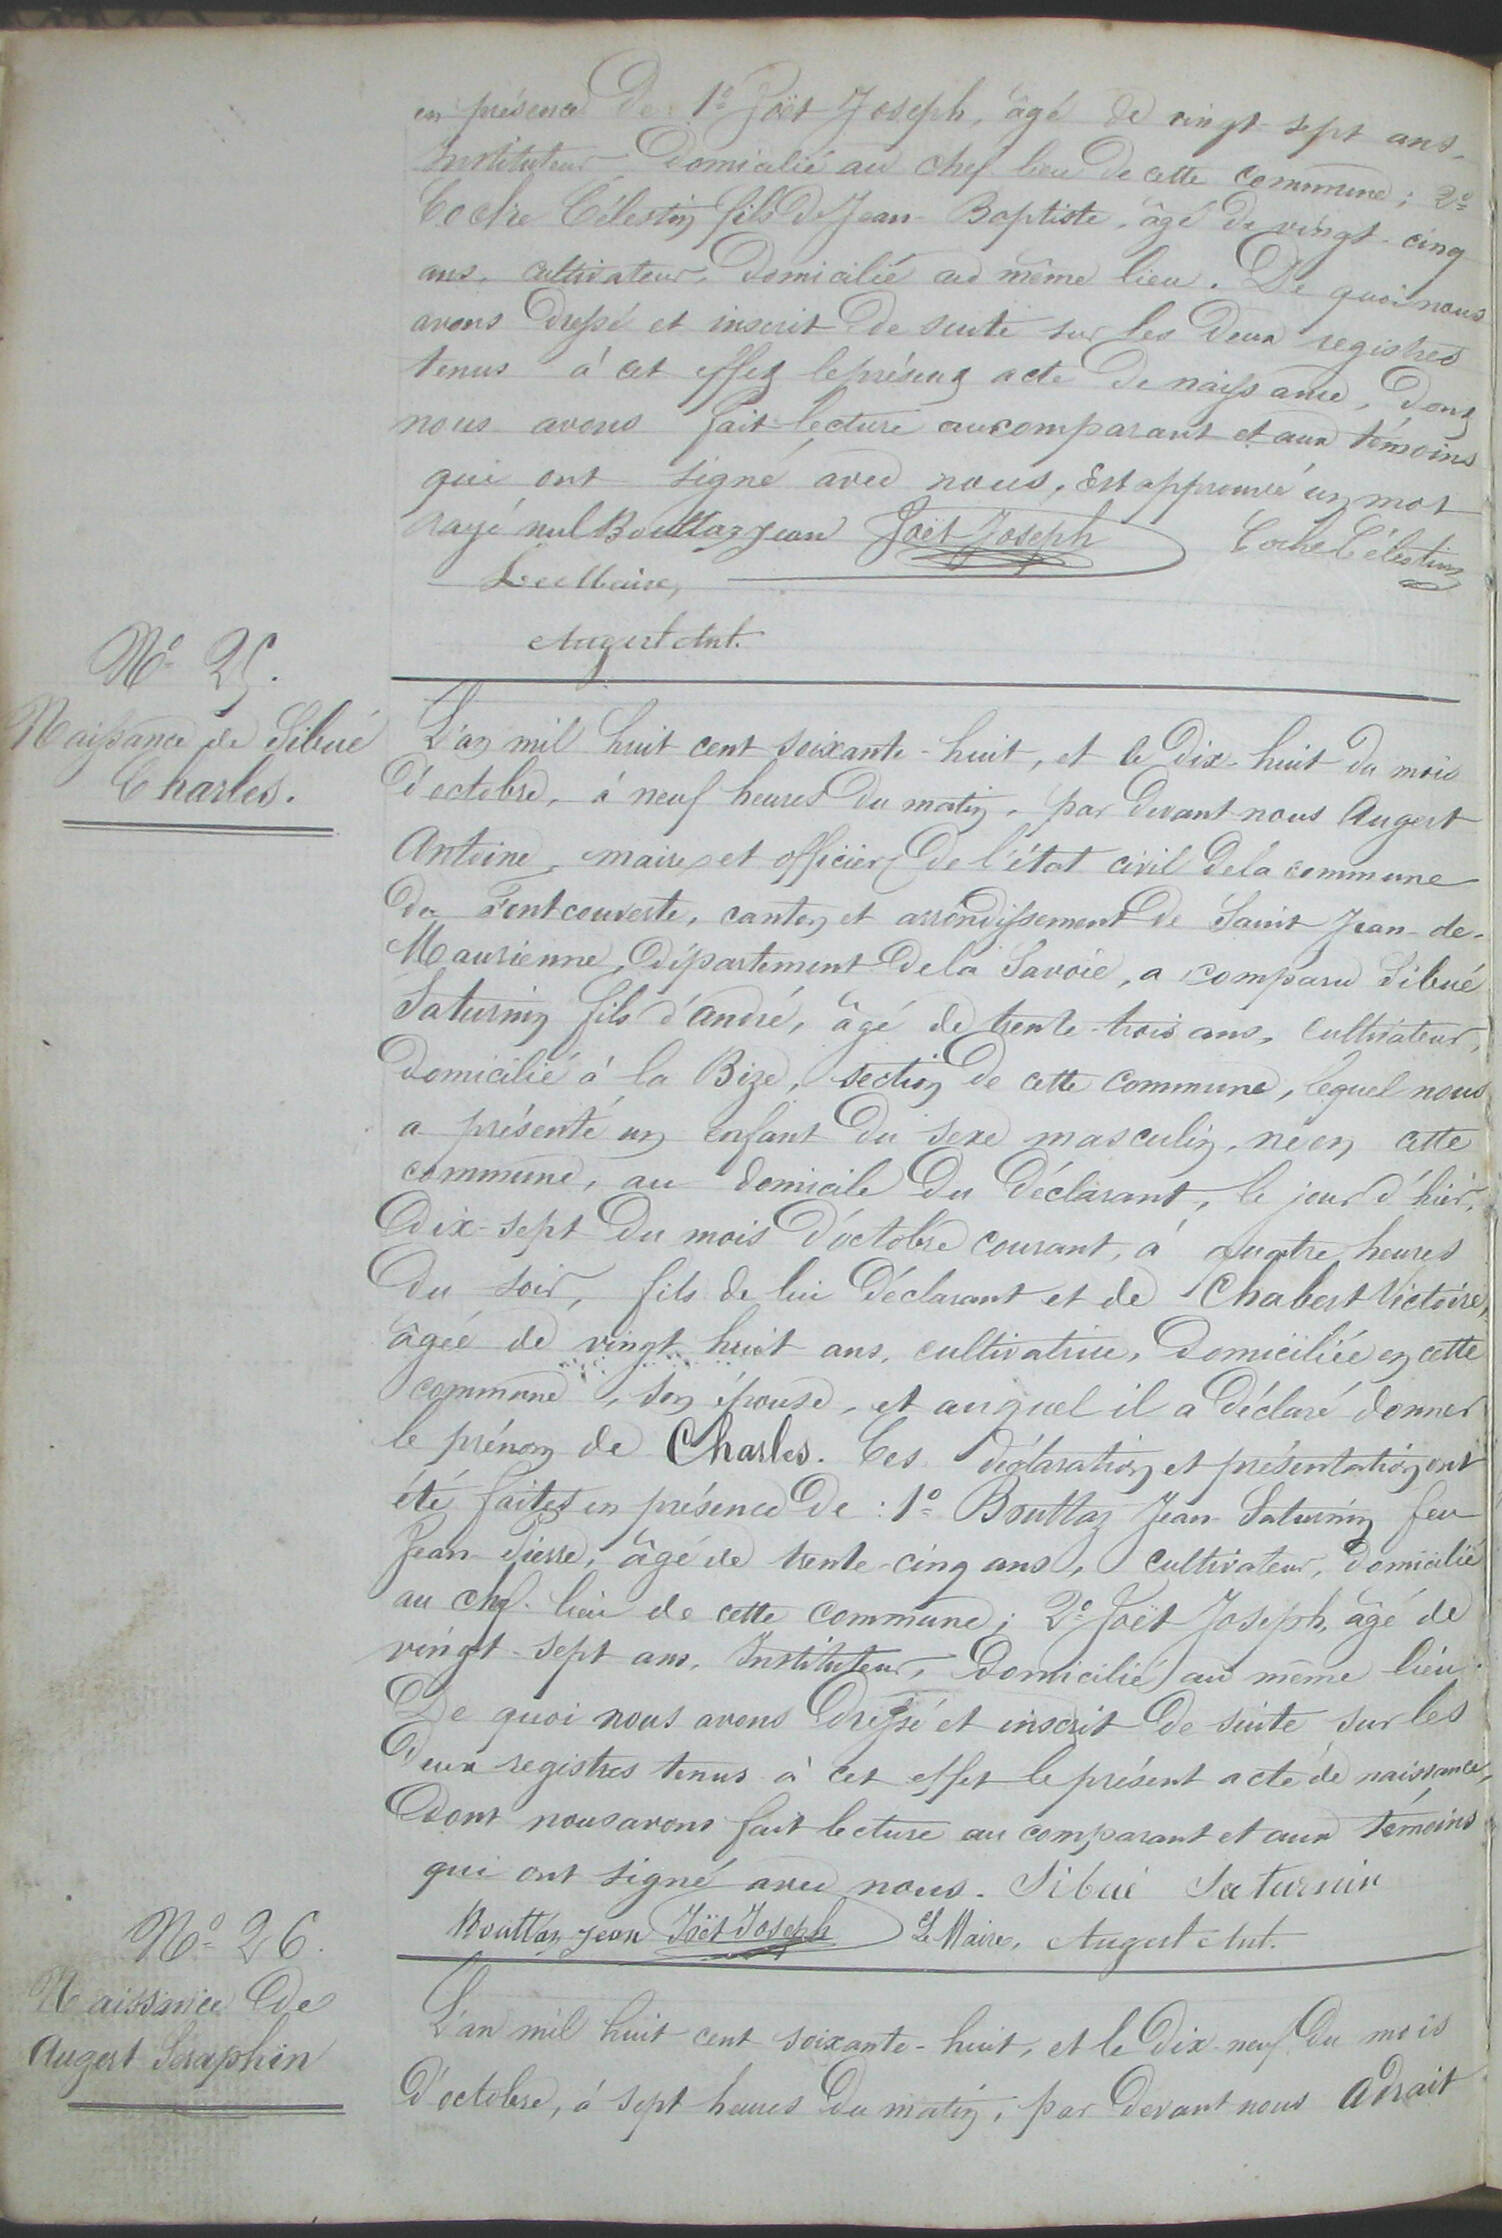 en présence de 1º Joët Joseph, âgé de vingt sept ans,
Instituteur domicilié au chef lieu de cette commune; 2º
Coche Célestin fils de Jean-Baptiste, âgé de vingt-cinq
ans, cultivateur, domicilié au même lieu. De quoi nous
avons dressé et inscrit de suite sur les deux registres
tenus à cet effet le présent acte de naissance, dont
nous avons fait lecture au comparant et aux témoins
qui ont signé avec nous, Est approuvé un mot
rayé nul Bouttaz Jean Joët Joseph Coche Célestin
Le Maire,
Augert Ant.
Nº 25.
Naissance de Sibué
Charles.
L'an mil huit cent soixante-huit, et le dix-huit du mois
d'octobre, à neuf heures du matin, par devant nous Augert
Antoine, maire et officier de l'état civil de la commune
de Fontcouverte, canton et arrondissement de Saint Jean-de-
Maurienne, département de la Savoie, a comparu Sibué
Saturnin fils d'André, âgé de trente-trois ans, cultivateur,
domicilié à la Bize, section de cette commune, lequel nous
a présenté un enfant du sexe masculin, né en cette
commune, au domicile du déclarant, le jour d'hier,
dix-sept du mois d'octobre courant, à quatre heures
du soir, fils de lui déclarant et de Chabert Victoire,
âgée de vingt huit ans, cultivatrice, domiciliée en cette
commune, son épouse, et auquel il a déclaré donner
le prénom de Charles. Ces déclaration et présentation ont
été faites en présence de : 1º Bouttaz Jean-Saturnin feu
Jean-Pierre, âgé de trente-cinq ans, cultivateur, domicilié
au chef-lieu de cette commune; 2º Joët Joseph, âgé de
vingt-sept ans, Instituteur, domicilié au même lieu.
De quoi nous avons dressé et inscrit de suite sur les
deux registres tenus à cet effet le présent acte de naissance,
dont nous avons fait lecture au comparant et aux témoins
qui ont signé avec nous. Sibué Saturnin
Bouttaz Jean Joët Joseph Le Maire, Augert Ant.
Nº 26.
Naissance de
Augert Séraphin
L'an mil huit cent soixante-huit, et le dix-neuf du mois
d'octobre, à sept heures du matin, par devant nous Adrait